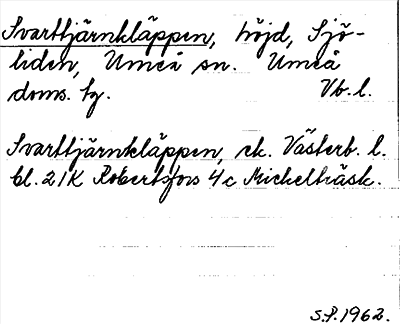 Svarttjärnkläppen, höjd, Sjö-
liden, Umeå sn. Umeå
doms. tg. Vb. l.
Svarttjärnkläppen, ek. Västerb. l.
bl. 21K Robertsfors 4c Micheltråsk.
S.P. 1962.